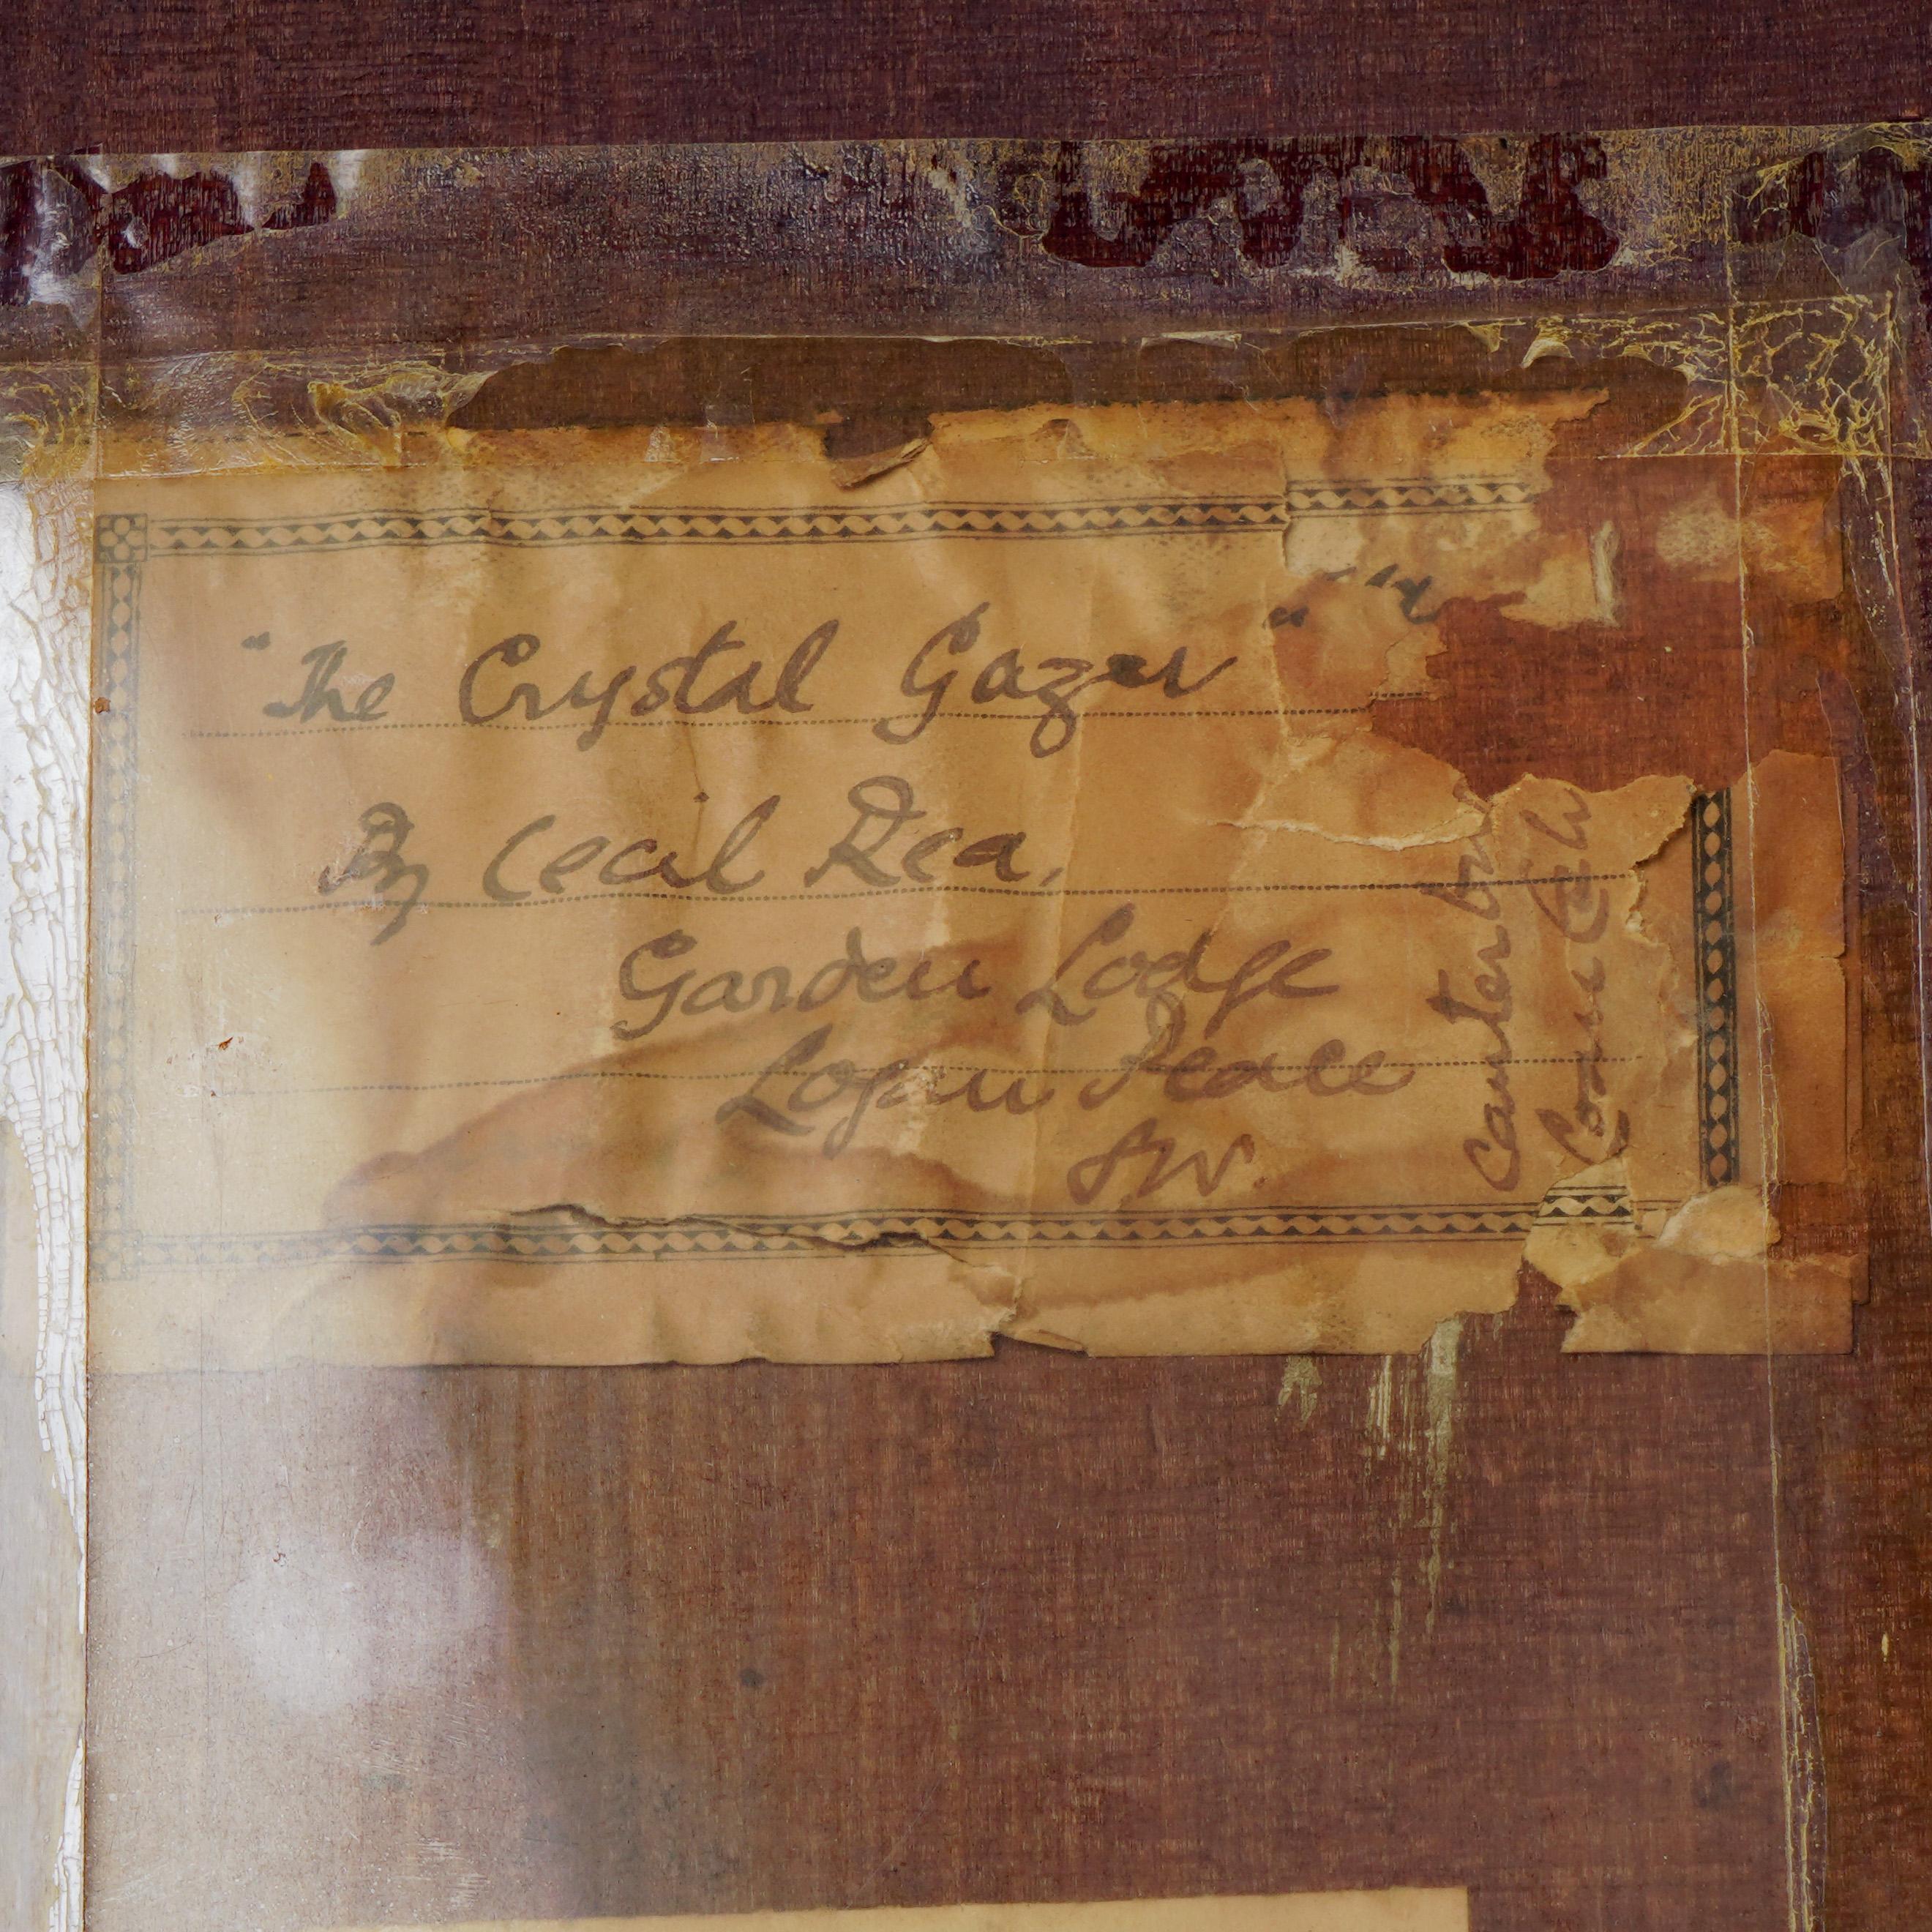 "The Crystal Gazer"
By Cecil Rea,
Garden Lodge
Logan Place
S.W.